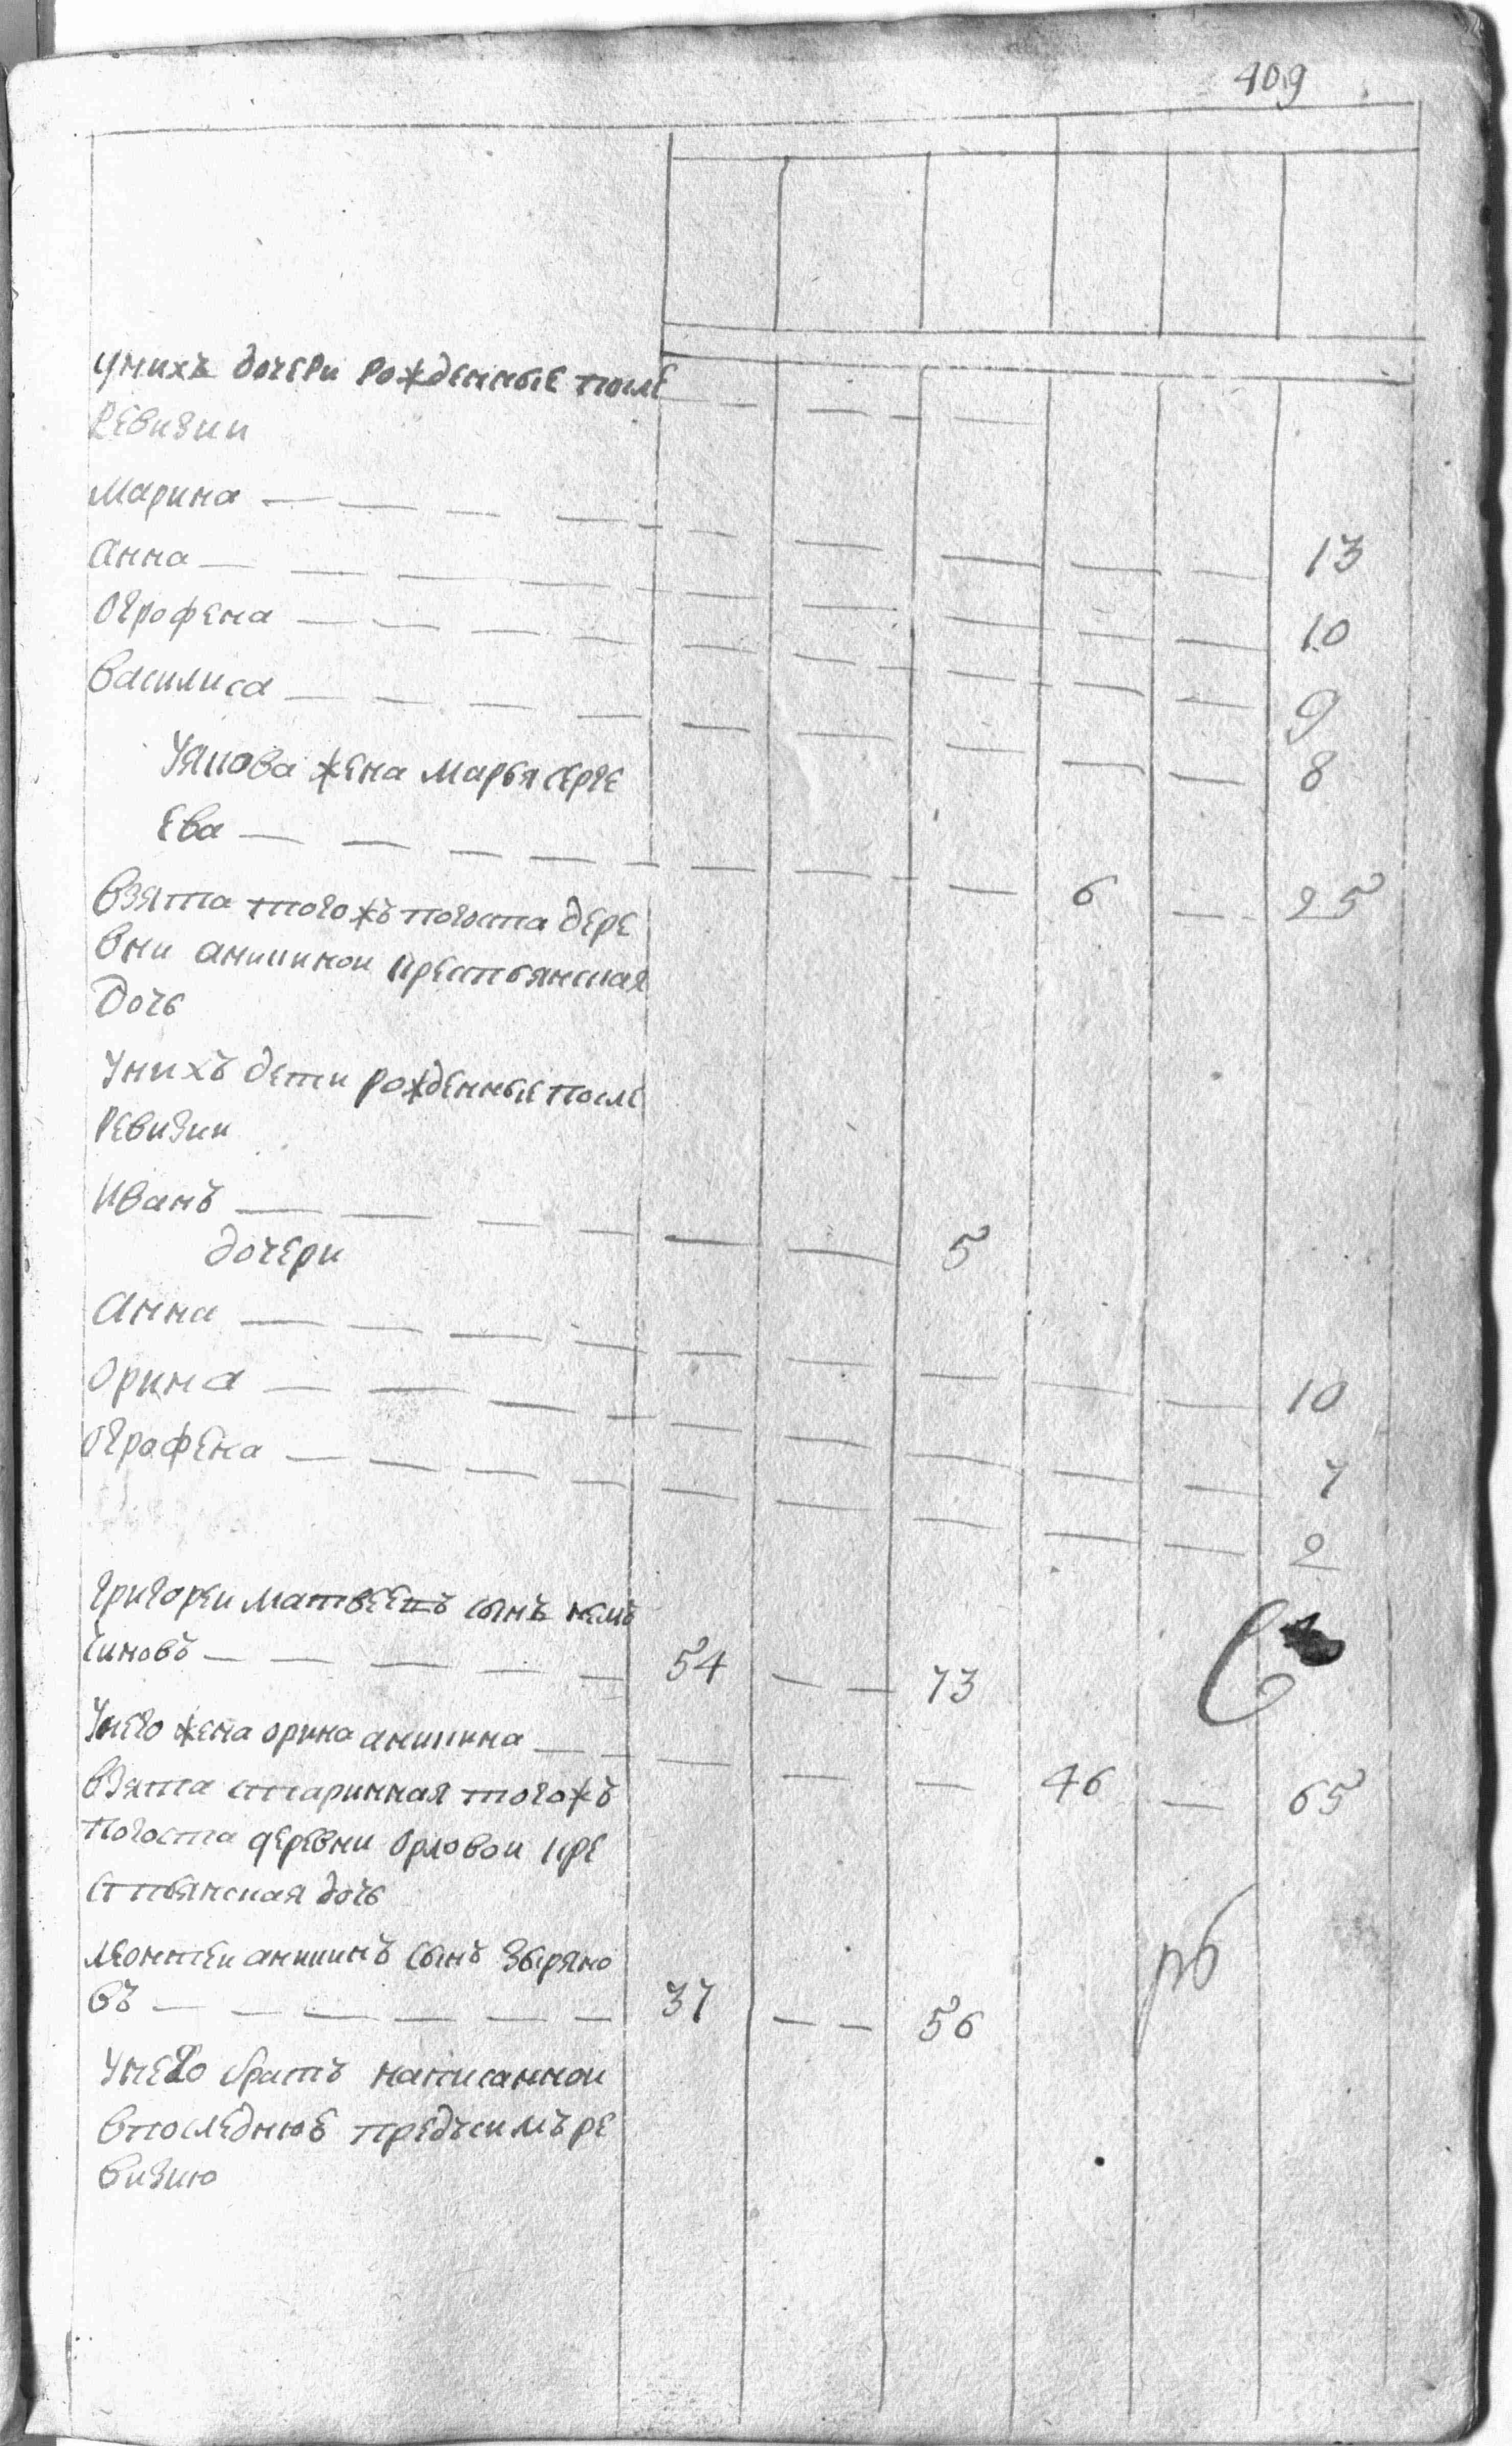 409
унихъ дочери рожденные после
ревизии
марина — — — — — — — — — — 13
анна — — — — — — — — — — 10
огрофена — — — — — — — — — — 9
василиса — — — — — — — — — — 8
Уякова жена марья серге
ева — — — — — — — — 6 — 25
взята тогожъ погоста дере
вни аникинои крестьянская
дочь
Унихъ дети рожденные после
ревизии
иванъ — — — — — — 5
дочери
анна — — — — — — — — — — 10
орина — — — — — — — — — — 7
ографена — — — — — — — — — — 2
григореи матвеевъ сынъ немъ
чиновъ — — — — — 54 — — 73
Унего жена орина аникина — — — — — 46 — 65
взята старинная тогожъ
погоста деревни орловои кре
стьянская дочь
леонтеи аникинъ сынъ зыряно
въ — — — — — 37 — — 56
Унего братъ написаннои
впоследнюе предъсимъ ре
визию